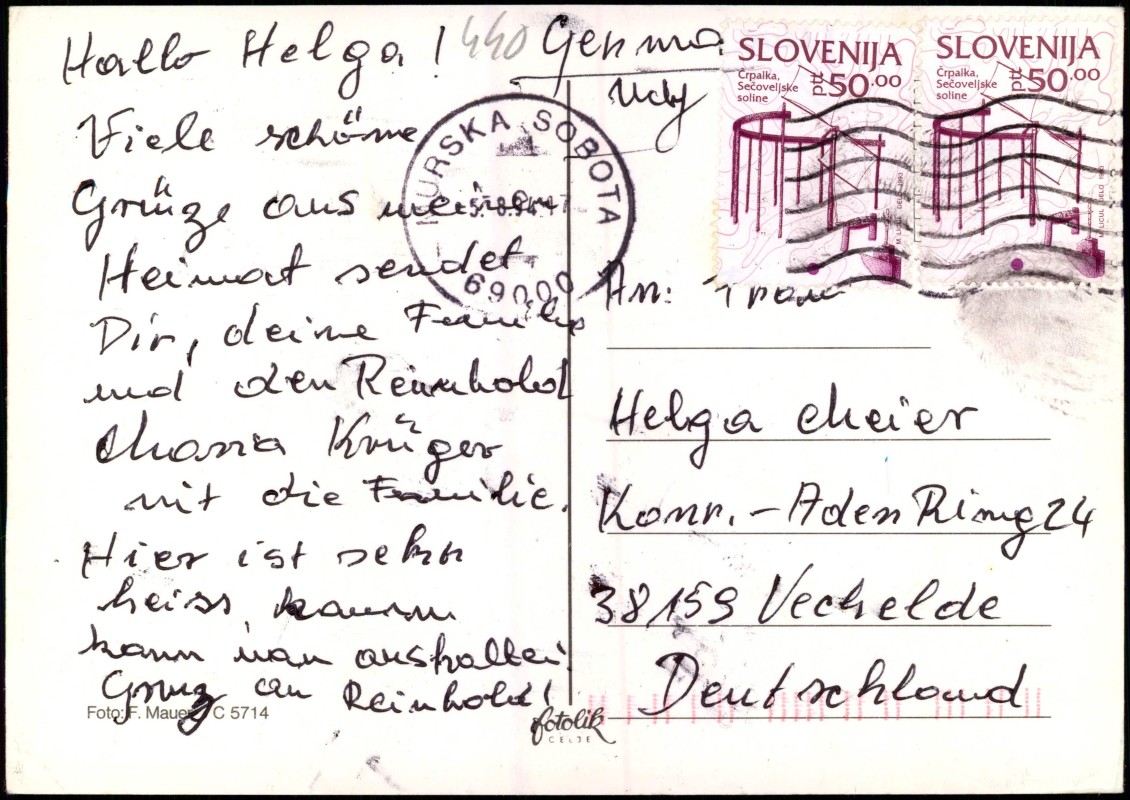 Hallo Helga!
Viele schöne
Grüze aus meiner
Heimat sendet
Dir, deine Familie
und den Reinhold
Maria Krüger
mit die Familie.
Hier ist sehr
heiss, kaum
kann man aushalten.
Gruz an Reinhold!
Foto: F. Mauer C 5714
fotolik
CELJE
440
MURSKA SOBOTA
69000
SLOVENIJA
Črpalka,
Sečoveljske
soline
ptt 50.00
SLOVENIJA
Črpalka,
Sečoveljske
soline
ptt 50.00
An:
Helga Meier
Konr.-Aden Ring 24
38159 Vechelde
Deutschland